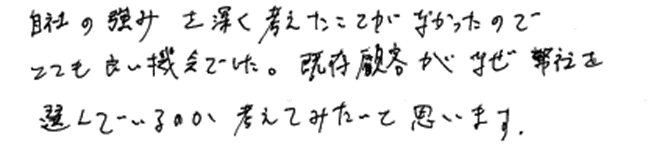 自社の強みを深く考えたことがなかったので
とても良い機会でした。既存顧客がなぜ弊社を
選んでいるのか考えてみたいと思います.